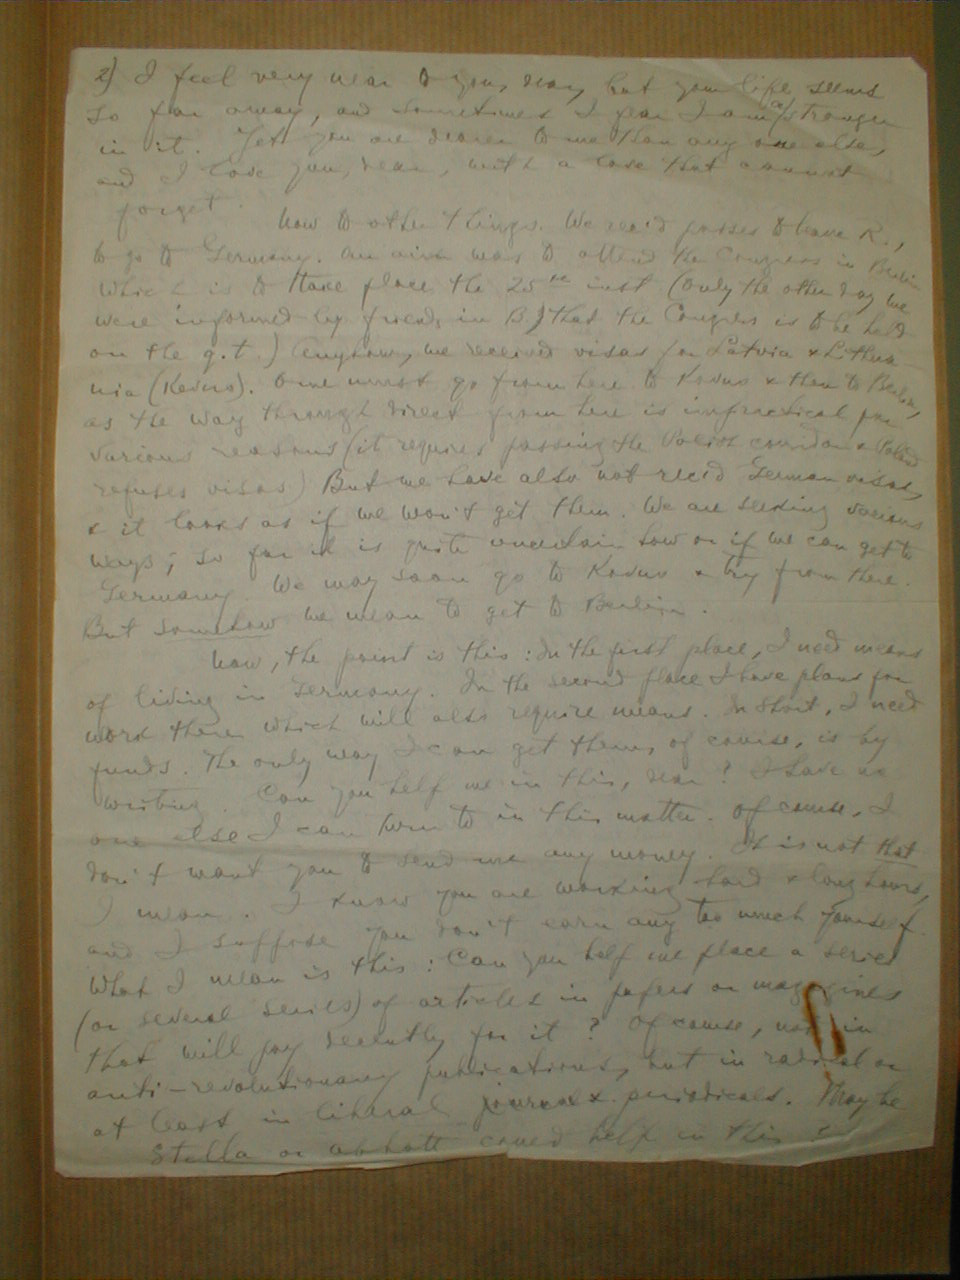 2) I feel very near to you, dear, but your life seems
so far away, and sometimes I fear I am a/stranger
in it. Yet you are dearer to me than any one else,
and I love you, dear, with a love that cannot
forget.
Now to other things. We rec'd passes to leave R.,
to go to Germany. Our aim was to attend the Congress in Berlin
which is to take place the 25th inst (Only the other day we
were informed by friends in B) that the Congress is to be held
on the q.t.) Anyhow, we received visas for Latvia & Lithua
nia (Kovno). One must go from here to Kovno & then to Berlin,
as the way through direct from here is impractical for
various reasons (it requires passing the Polish corridor & Poland
refuses visas) But we have also not rec'd German visas,
& it looks as if we won't get them. We are seeking various
ways; so far it is quite uncertain how or if we can get to
Germany. We may soon go to Kovno & try from there.
But somehow we mean to get to Berlin.
Now, the point is this: In the first place, I need means
of living in Germany. In the second place I have plans for
work there which will also require means. In short, I need
funds. The only way I can get them, of course, is by
writing. Can you help me in this, dear? I have no
one else I can turn to in this matter. Of course, I
don't want you to send me any money. It is not that
I mean. I know you are working hard & long hours,
and I suppose you don't earn any too much yourself.
What I mean is this: Can you help me place a series
(or several series) of articles in papers or magazines
that will pay decently for it? Of course, not in
anti-revolutionary publications, but in radical or
at least in liberal journals & periodicals. Maybe
Stella or Abbott could help in this?